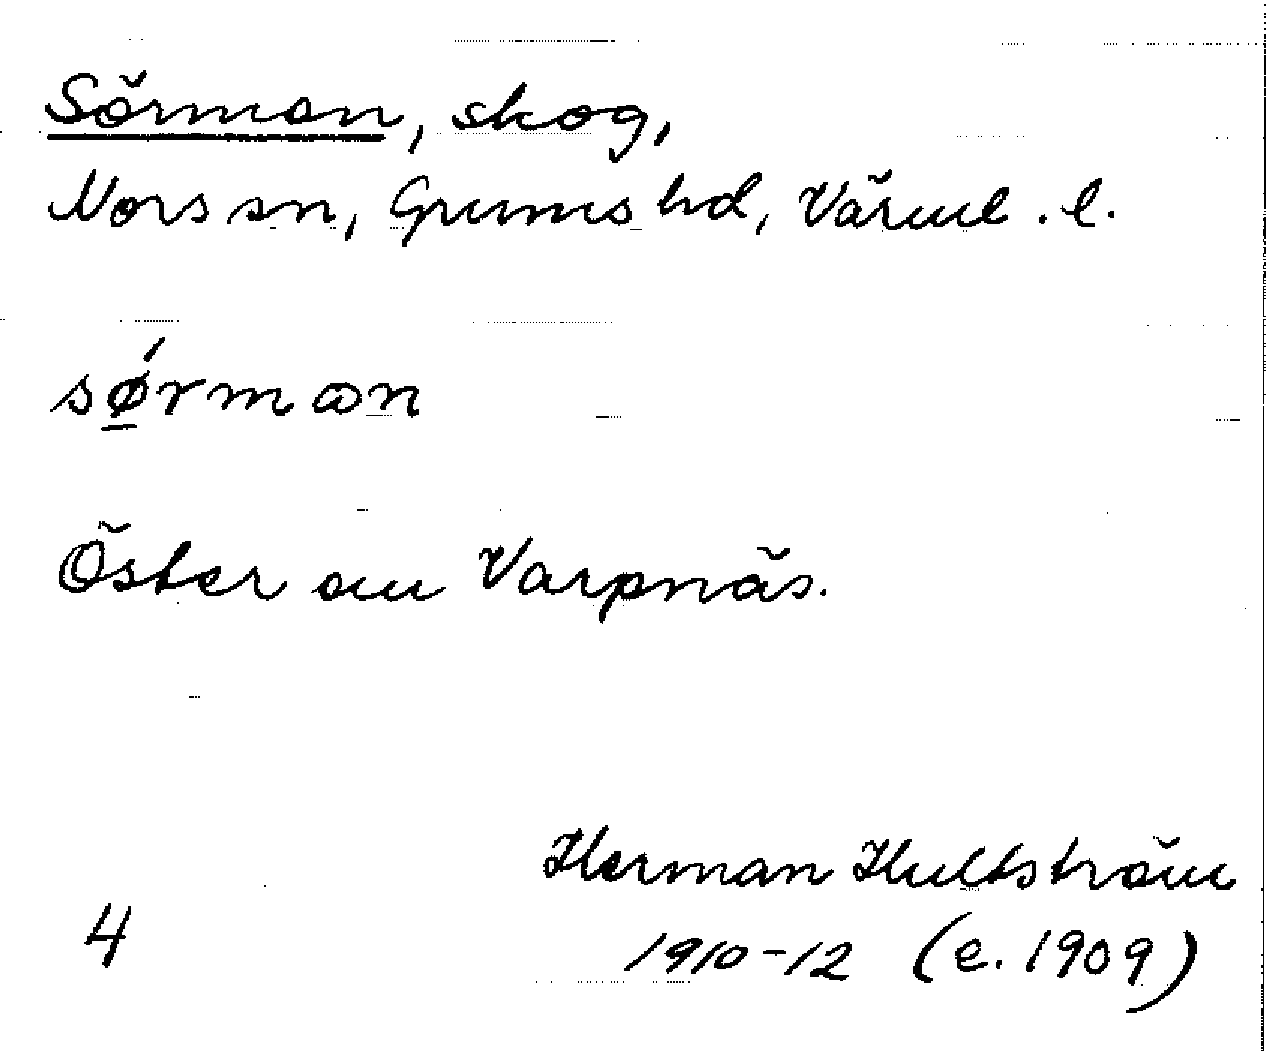 Sörmon, skog,
Nors sn, Grums hd, Värml. l.
sǿrmon
Öster om Varpnäs.
Herman Hultström
4 1910-12 (e. 1909)